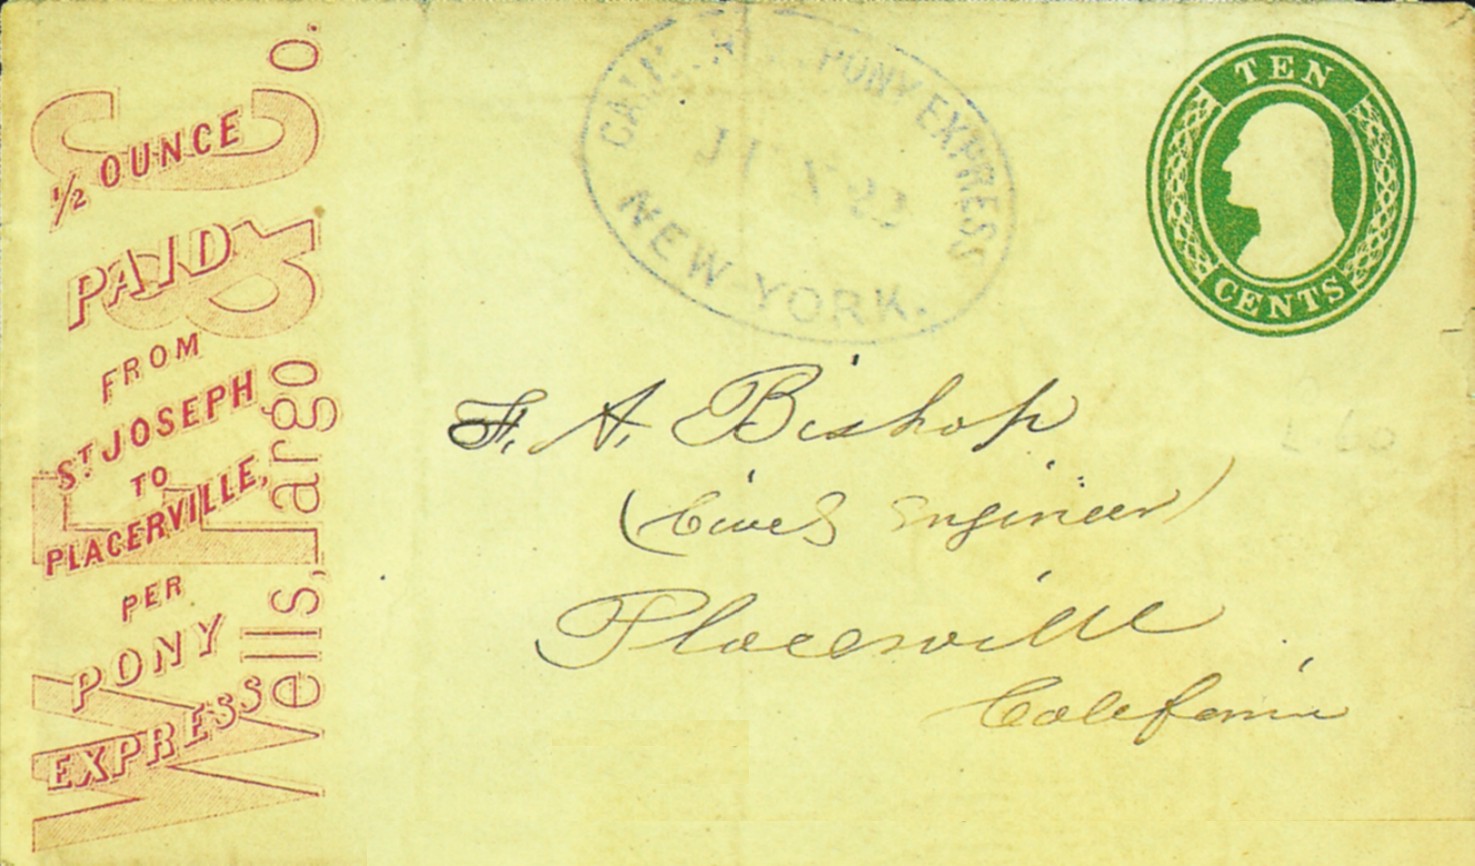 ½ OUNCE
PAID
FROM
ST JOSEPH
TO
PLACERVILLE,
PER
PONY
EXPRESS
Wells, Fargo & Co.
PONY EXPRESS
NEW-YORK.
TEN
CENTS
F. A. Bishop
(Civil Engineer)
Placerville
California